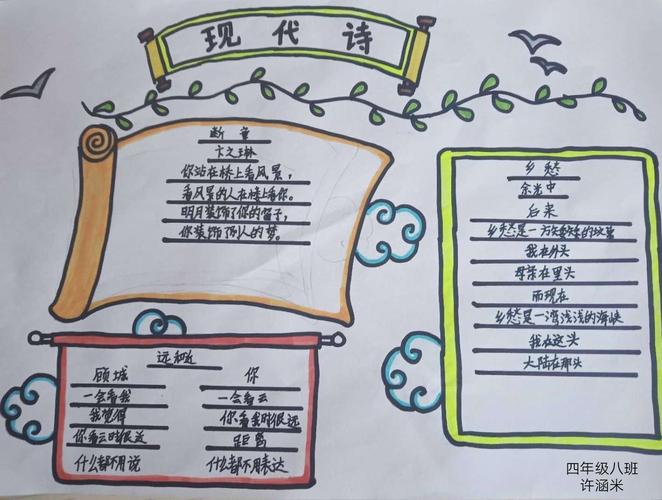 现代诗
断章
卞之琳
你站在桥上看风景，
看风景的人在楼上看你。
明月装饰了你的窗子，
你装饰了别人的梦。
乡愁
余光中
后来
乡愁是一方矮矮的坟墓
我在外头
母亲在里头
而现在
乡愁是一湾浅浅的海峡
我在这头
大陆在那头
远和近
顾城
一会看我
我觉得
你看云时很近
什么都不用说
你
一会看云
你看我时很远
距离
什么都不用表达
四年级八班
许涵米